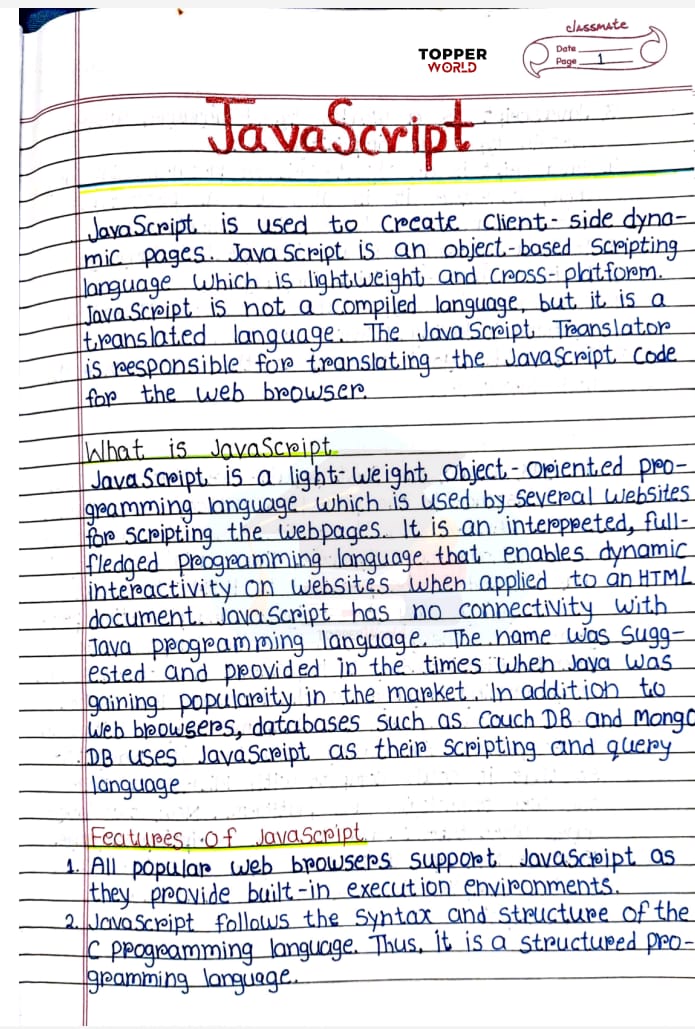 classmate
Date
Page 1
TOPPER
WORLD
JavaScript
JavaScript is used to create client-side dyna-
mic pages. JavaScript is an object-based scripting
language which is lightweight and cross-platform.
JavaScript is not a compiled language, but it is a
translated language. The JavaScript Translator
is responsible for translating the JavaScript code
for the web browser.
What is JavaScript
JavaScript is a light-weight object-oriented pro-
gramming language which is used by several websites
for scripting the webpages. It is an interpreted, full-
fledged programming language that enables dynamic
interactivity on websites when applied to an HTML
document. JavaScript has no connectivity with
Java programming language. The name was sugg-
ested and provided in the times when Java was
gaining popularity in the market. In addition to
web browsers, databases such as Couch DB and Mongo
DB uses JavaScript as their scripting and query
language
Features of JavaScript
1. All popular web browsers support JavaScript as
they provide built-in execution environments.
2. JavaScript follows the syntax and structure of the
C programming language. Thus, it is a structured pro-
gramming language.